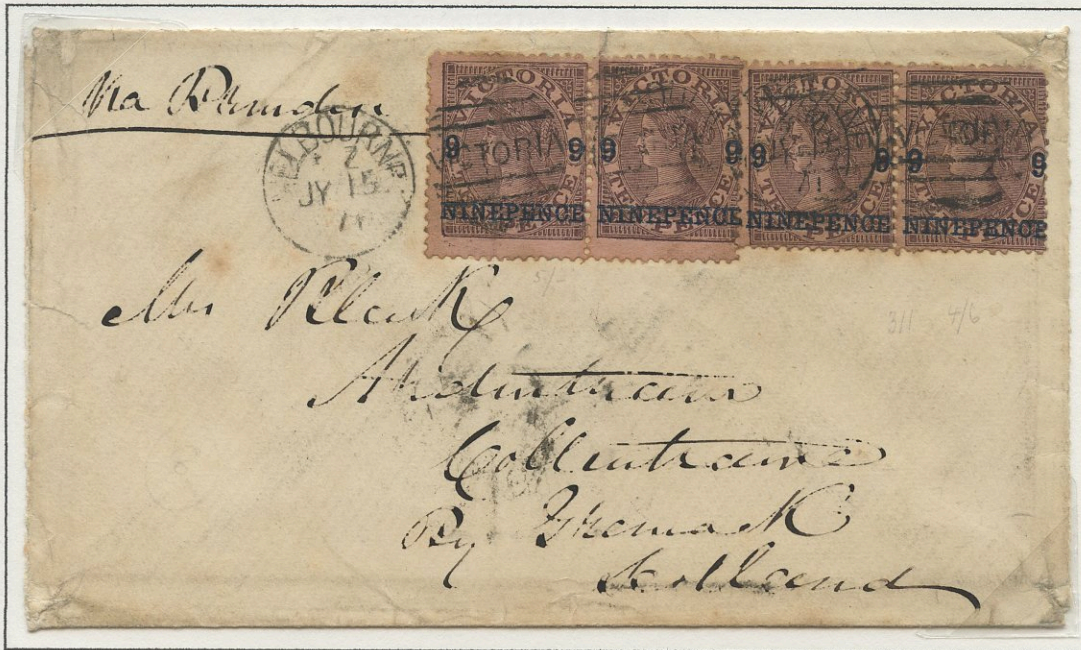 Via Brindisi
MELBOURNE
JY 15
71
VICTORIA
9 9
NINEPENCE
VICTORIA
VICTORIA
9 9
NINEPENCE
VICTORIA
9 9
NINEPENCE
VICTORIA
9 9
NINEPENCE
5/-
311 4/6
Mrs Black
Collintraive
By Greenock
Scotland